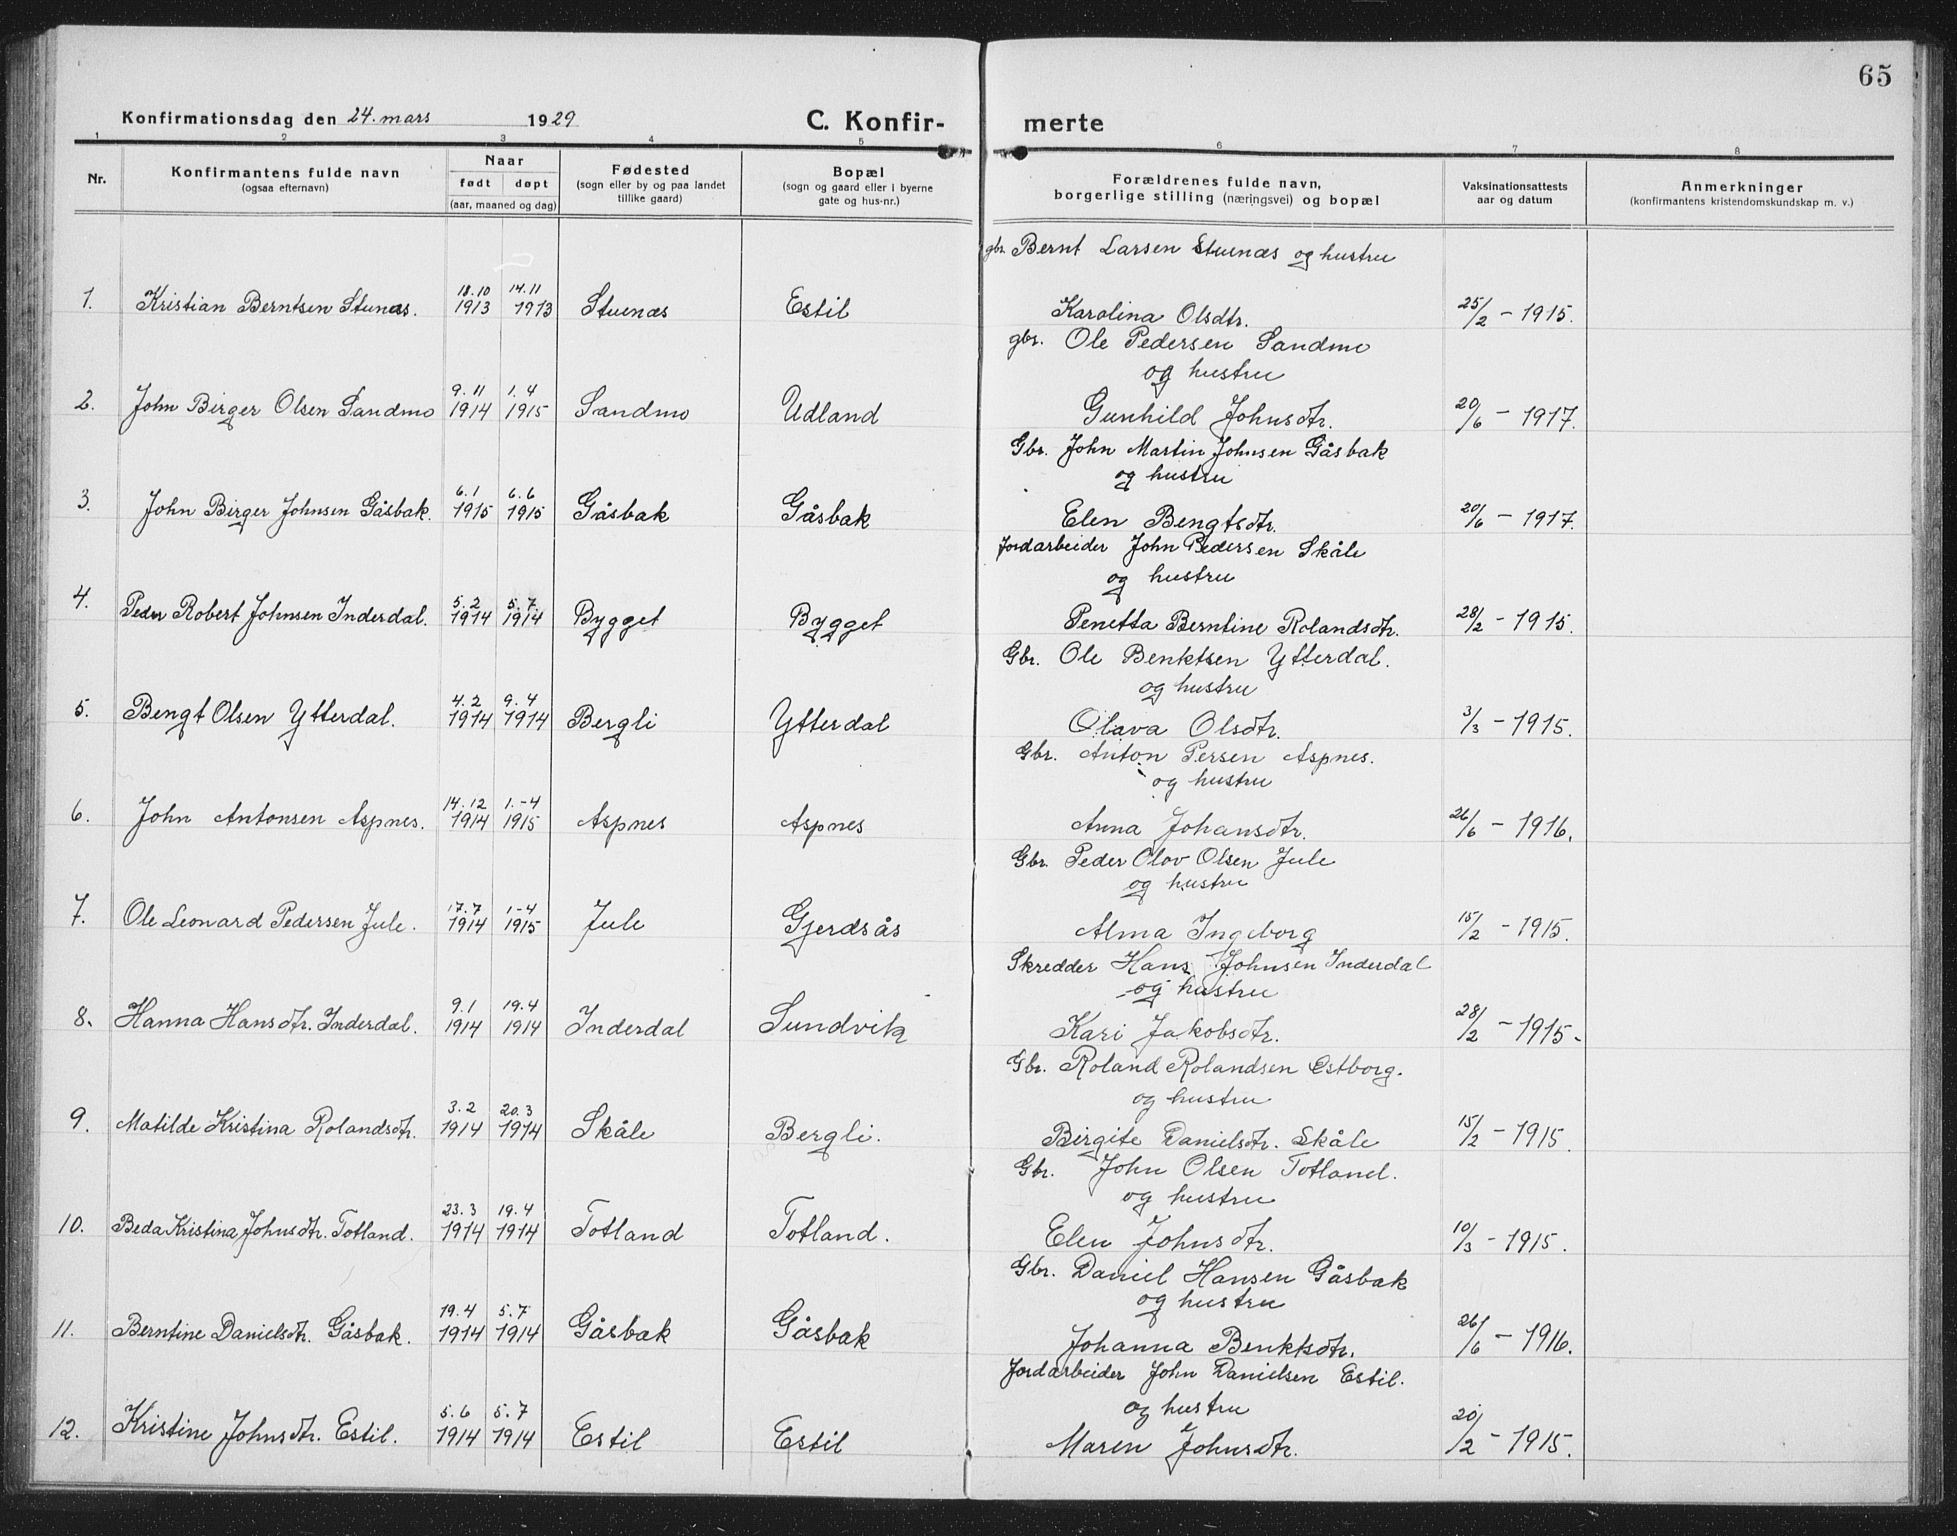 65
Konfirmationsdag den 24. mars 1929 C. Konfir- merte
1 2 3 4 5 6 7 8
Nr. Konfirmantens fulde navn (ogsaa efternavn) Naar født døpt (aar, maaned og dag) Fødested (sogn eller by og paa landet tillike gaard) Bopæl (sogn og gaard eller i byerne gate og hus-nr.) Forældrenes fulde navn, borgerlige stilling (næringsvei) og bopæl Vaksinationsattests aar og datum Anmerkninger (konfirmantens kristendomskundskap m. v.)
gbr. Bernt Larsen Stuenæs og hustru
1. Kristian Berntsen Stunæs. 18.10 1913 14.11 1913 Stuenæs Estil Karolina Olsdtr. 25/2 - 1915.
gbr. Ole Pedersen Sandmo
og hustru
2. John Birger Olsen Sandmo 9.11 1914 1.4 1915 Sandmo Udland Gunhild Johnsdtr. 20/6 - 1917.
Gbr. John Martin Johnsen Gåsbak
og hustru
3. John Birger Johnsen Gåsbak. 6.1 1915 6.6 1915 Gåsbak Gåsbak Elen Bengtsdtr. 20/6 - 1917.
Jordarbeider John Pedersen Skåle
og hustru
4. Peder Robert Johnsen Inderdal. 5.2 1914 5.7. 1914 Bygget Bygget Penetta Berntine Rolandsdtr. 28/2 - 1915.
Gbr. Ole Benktsen Ytterdal.
og hustru
5. Bengt Olsen Ytterdal. 4.2 1914 9.4 1914 Bergli Ytterdal Olava Olsdtr. 3/3 - 1915.
Gbr. Anton Persen Aspnes.
og hustru
6. John Antonsen Aspnes. 14.12 1914 1.-4 1915 Aspnes Aspnes Anna Johansdtr. 26/6 - 1916.
Gbr. Peder Olov Olsen Jule
og hustru
7. Ole Leonard Pedersen Jule. 17.7 1914 1-4 1915 Jule Gjerdsås Alma Ingeborg 15/2 - 1915.
Skredder Hans Johnsen Inderdal
og hustru
8. Hanna Hansdtr. Inderdal. 9.1 1914 19.4 1914 Inderdal Sundvik Kari Jakobsdtr. 28/2 - 1915.
Gbr. Roland Rolandsen Estborg.
og hustru
9. Matilde Kristina Rolandsdtr. 3.2 1914 20.3 1914 Skåle Bergli. Birgite Danielsdtr. Skåle 15/2 - 1915.
Gbr. John Olsen Totland.
og hustru
10. Beda Kristina Johnsdtr. Totland. 23.3 1914 19.4 1914 Totland Totland. Elen Johnsdtr. 10/3 - 1915.
Gbr. Daniel Hansen Gåsbak
og hustru
11. Berntine Danielsdtr. Gåsbak. 19.4 1914 5.7 1914 Gåsbak Gåsbak Johanna Benktsdtr. 26/6 - 1916.
Jordarbeider John Danielsen Estil.
og hustru
12. Kristine Johnsdtr. Estil. 5.6 1914 5.7 1914 Estil Estil Maren Johnsdtr. 20/2 - 1915.